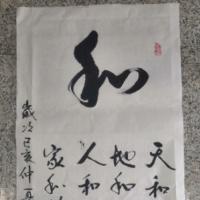 和
天和
地和
人和
家和
歲次己亥仲夏